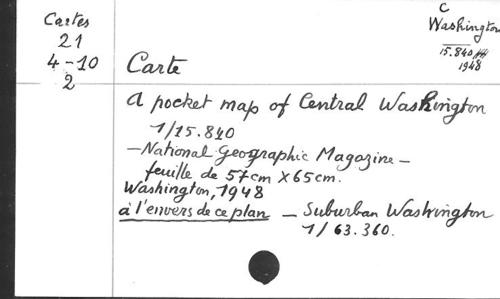 Cartes
21
4-10
2
C
Washington
15.840
1948
Carte
A pocket map of Central Washington
1/15.840
-National Geographic Magazine-
feuille de 57cm X 65cm.
Washington, 1948
à l'envers de ce plan - Suburban Washington
1/63.360.